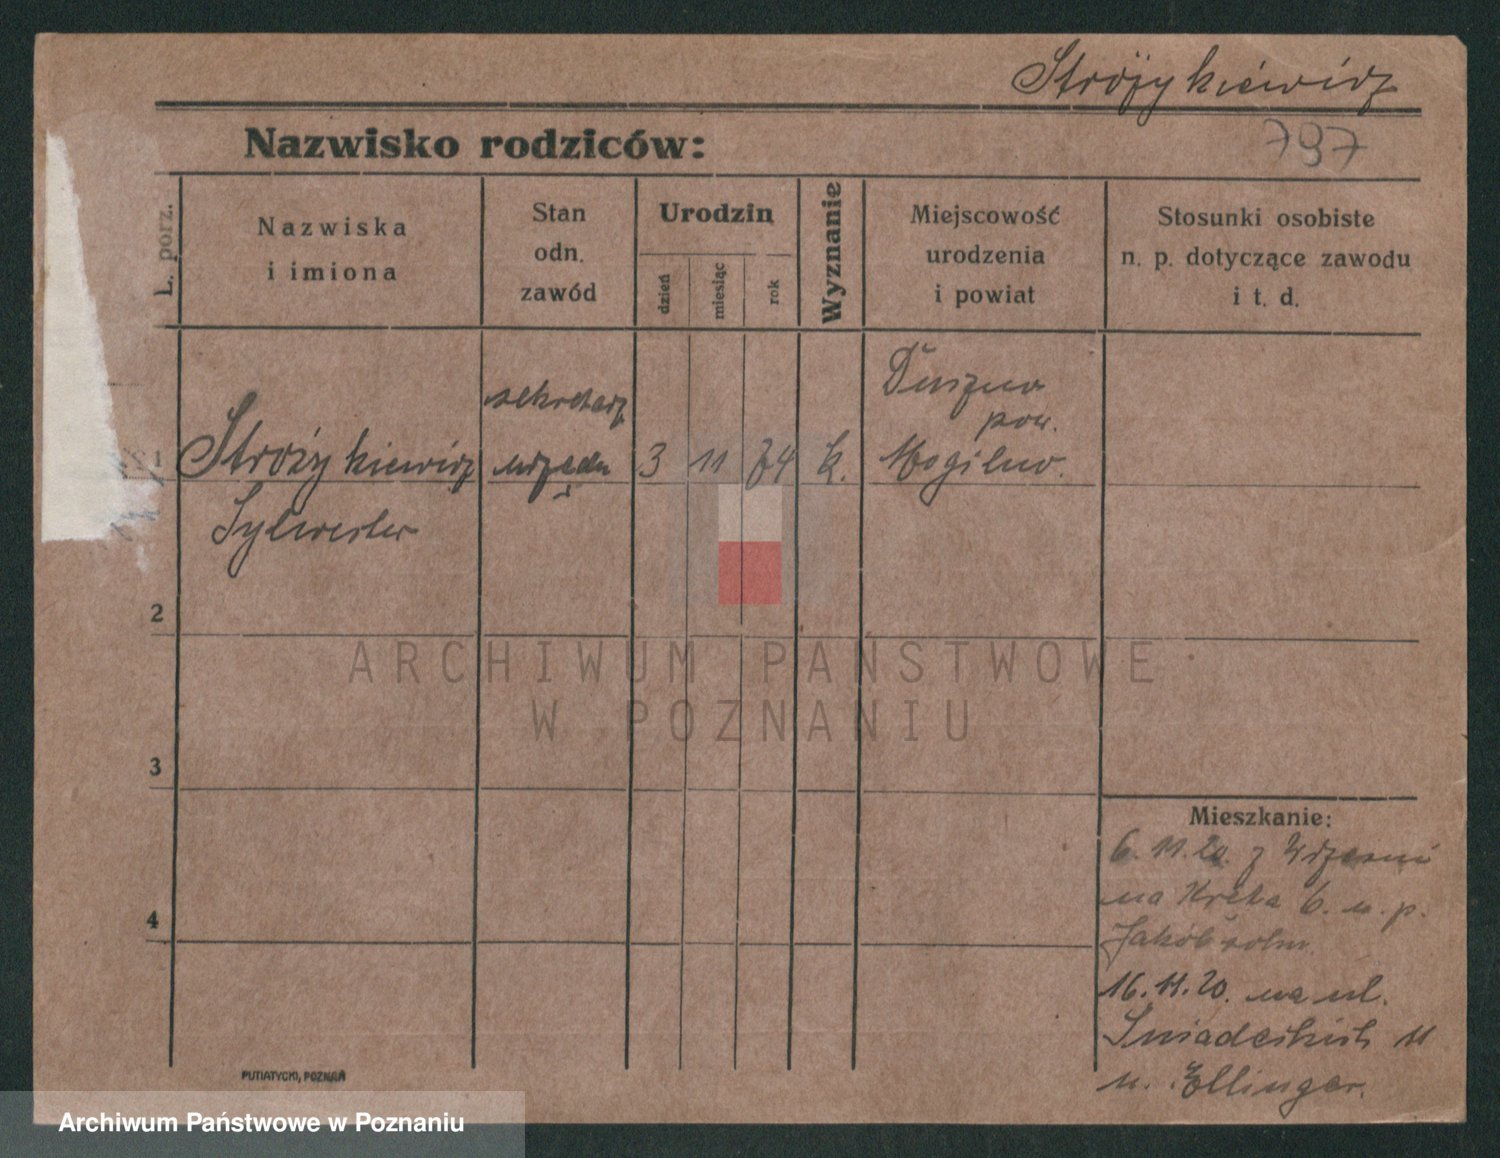 Stróżykiewicz
797
Nazwisko rodziców:
L. porz.
Nazwiska
i imiona
Stan
odn.
zawód
Urodzin
dzień
miesiąc
rok
Wyznanie
Miejscowość
urodzenia
i powiat
Stosunki osobiste
n. p. dotyczące zawodu
i t. d.
1
Stróżykiewicz
Sylwester
sekretarz
urzędu
3 11 74 k.
Duszno
pow.
Mogilno.
2
3
4
Mieszkanie:
6.11.20. z Wrześni
na Kręta 6. u. p.
16.11.20. na ul.
Śniadeckich 11
u. Ellinger.
PUTIATYCKI, POZNAŃ
ARCHIWUM PAŃSTWOWE
W POZNANIU
Archiwum Państwowe w Poznaniu